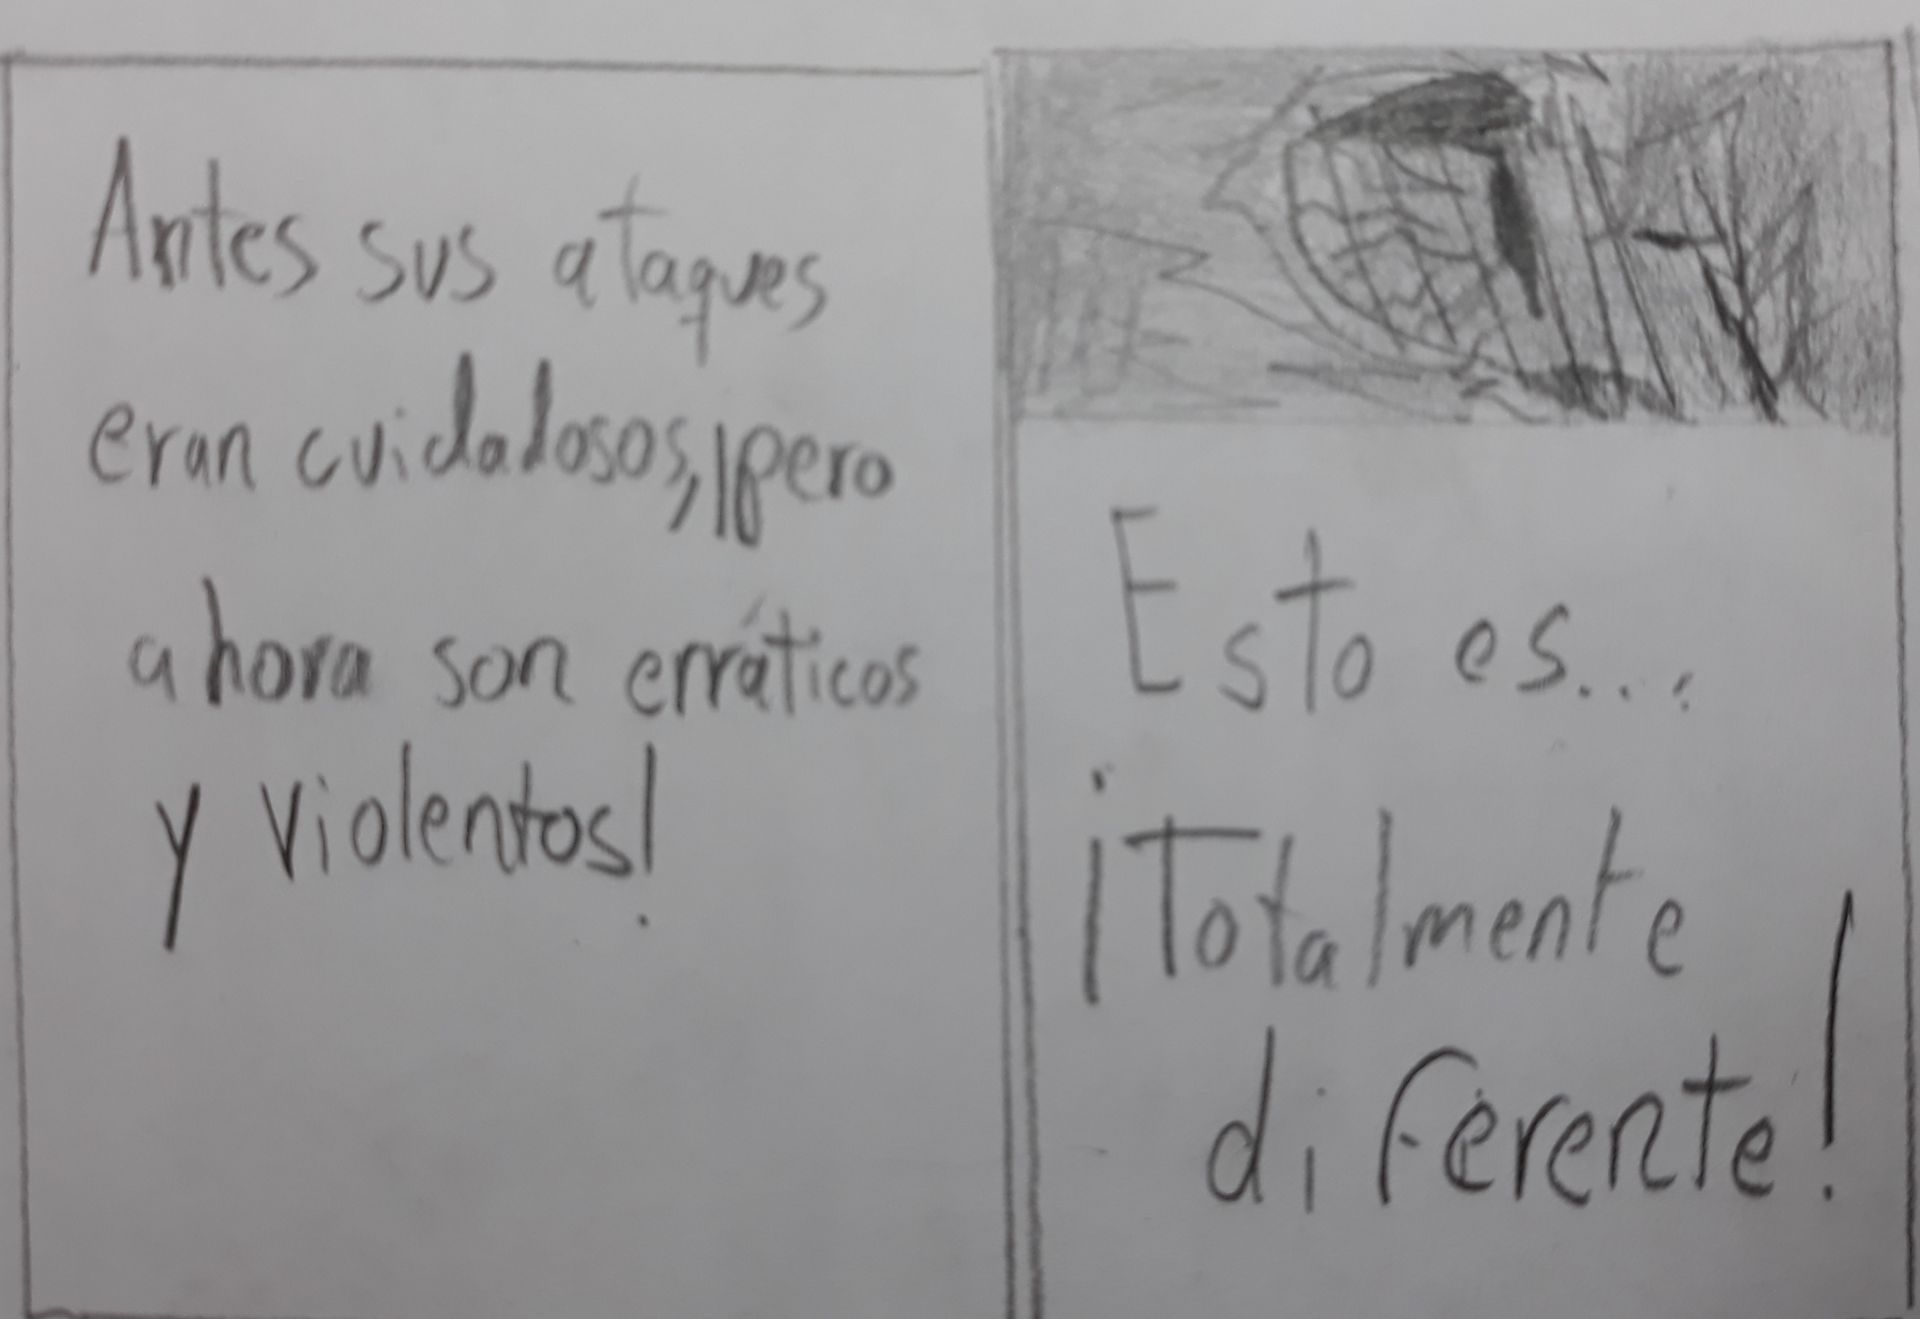 Antes sus ataques
eran cuidadosos, ¡pero
ahora son erráticos
y violentos!
Esto es...
¡Totalmente
diferente!